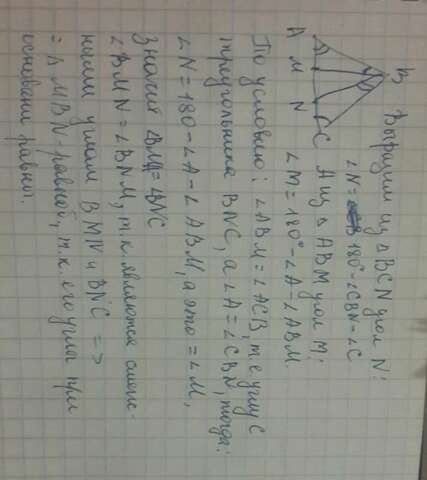 B
A M N C
Выразим из △BCN угол N:
∠N = 180° - ∠CBN - ∠C
А из △ABM угол M:
∠M = 180° - ∠A - ∠ABM
По условию: ∠ABM = ∠ACB, т.е углу C
треугольника BNC, а ∠A = ∠CBN, тогда:
∠N = 180 - ∠A - ∠ABM, а это = ∠M,
значит ∠BMA = ∠BNC
∠BMN = ∠BNM, т.к. являются смеж-
ными углам BMN и BNC =>
= △MBN - равноб., т.к. его углы при
основани равны.